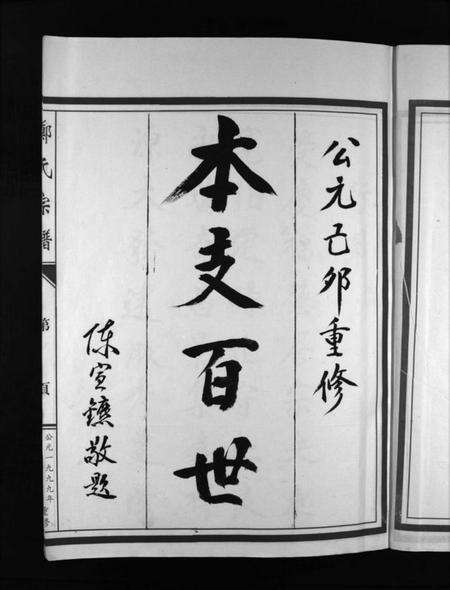 公元己卯重修
本支百世
陈宣镳敬题
鄭氏宗譜
第 頁
公元一九九九年重修